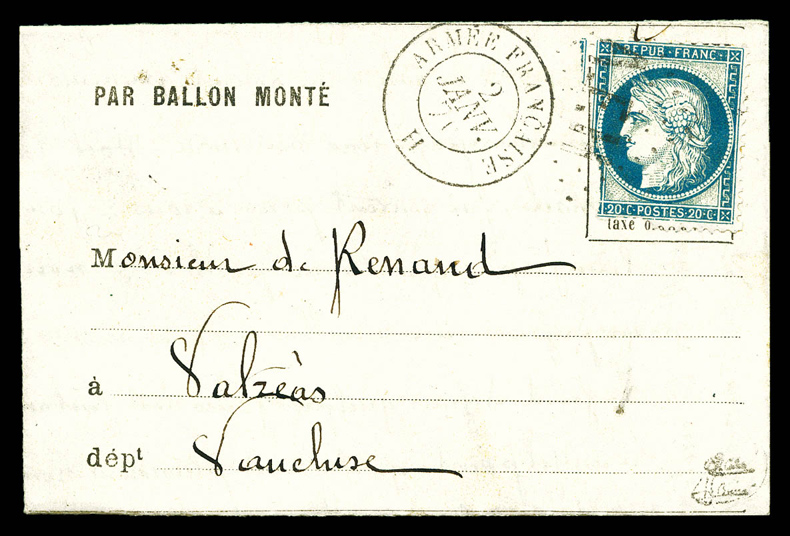 PAR BALLON MONTÉ
ARMÉE FRANÇAISE
2
JANV.
71
H
REPUB. FRANC.
20 C. POSTES 20 C.
taxé
Monsieur de Renaud
à Valréas
dépt Vaucluse